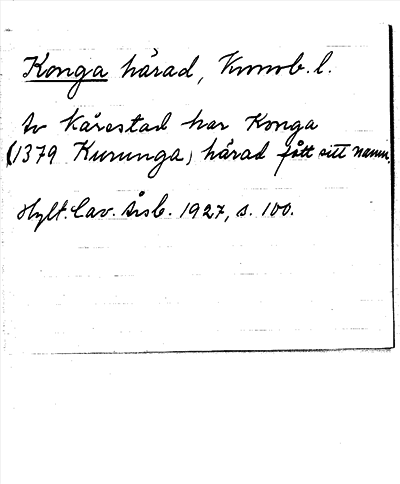 Konga härad, Kronob. l.
Av Kårestad har Konga
(1379 Kununga) härad fått sitt namn.
Hylt. Cav. Årsb. 1927, s. 100.